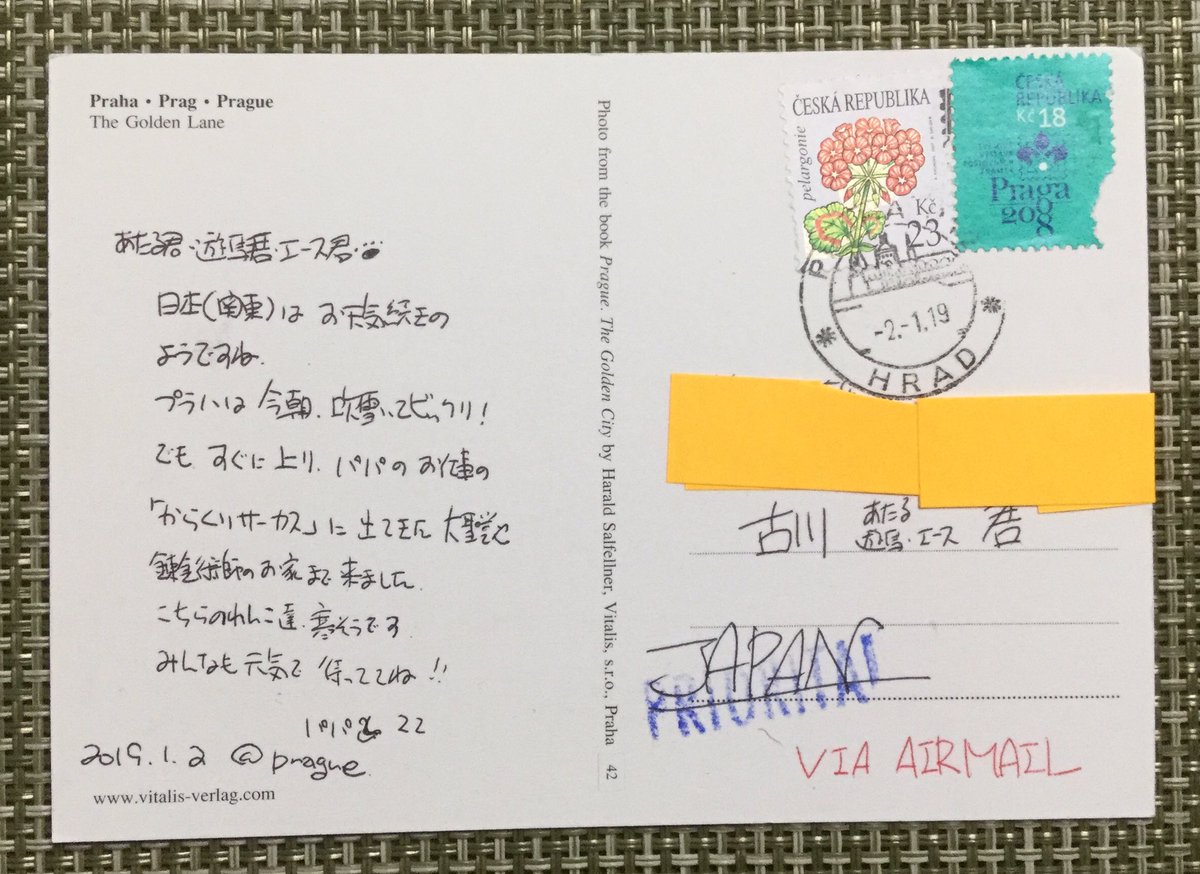 Praha • Prag • Prague
The Golden Lane
あたる君・遊馬君・エース君・
日本(関東)は お天気続きの
ようですね.
プラハは 今朝、吹雪いてビックリ!
でも すぐに 上り、パパの お仕事の
「からくりサーカス」に 出てきた 大聖堂や
錬金術師のお家まで 来ました.
こちらのわんこ達、寒そうです
みんなも 元気で 待っててね!!
パパ
2019.1.2 @prague.
www.vitalis-verlag.com
Photo from the book Prague. The Golden City by Harald Salfellner, Vitalis, s.r.o., Praha 42
ČESKÁ REPUBLIKA
pelargonie
Kč
23
ČESKÁ
REPUBLIKA
Kč 18
Praga
2008
-2.-1.19
HRAD
古川 あたる 君
遊馬・エース
JAPAN
PRIORITNÍ
VIA AIRMAIL